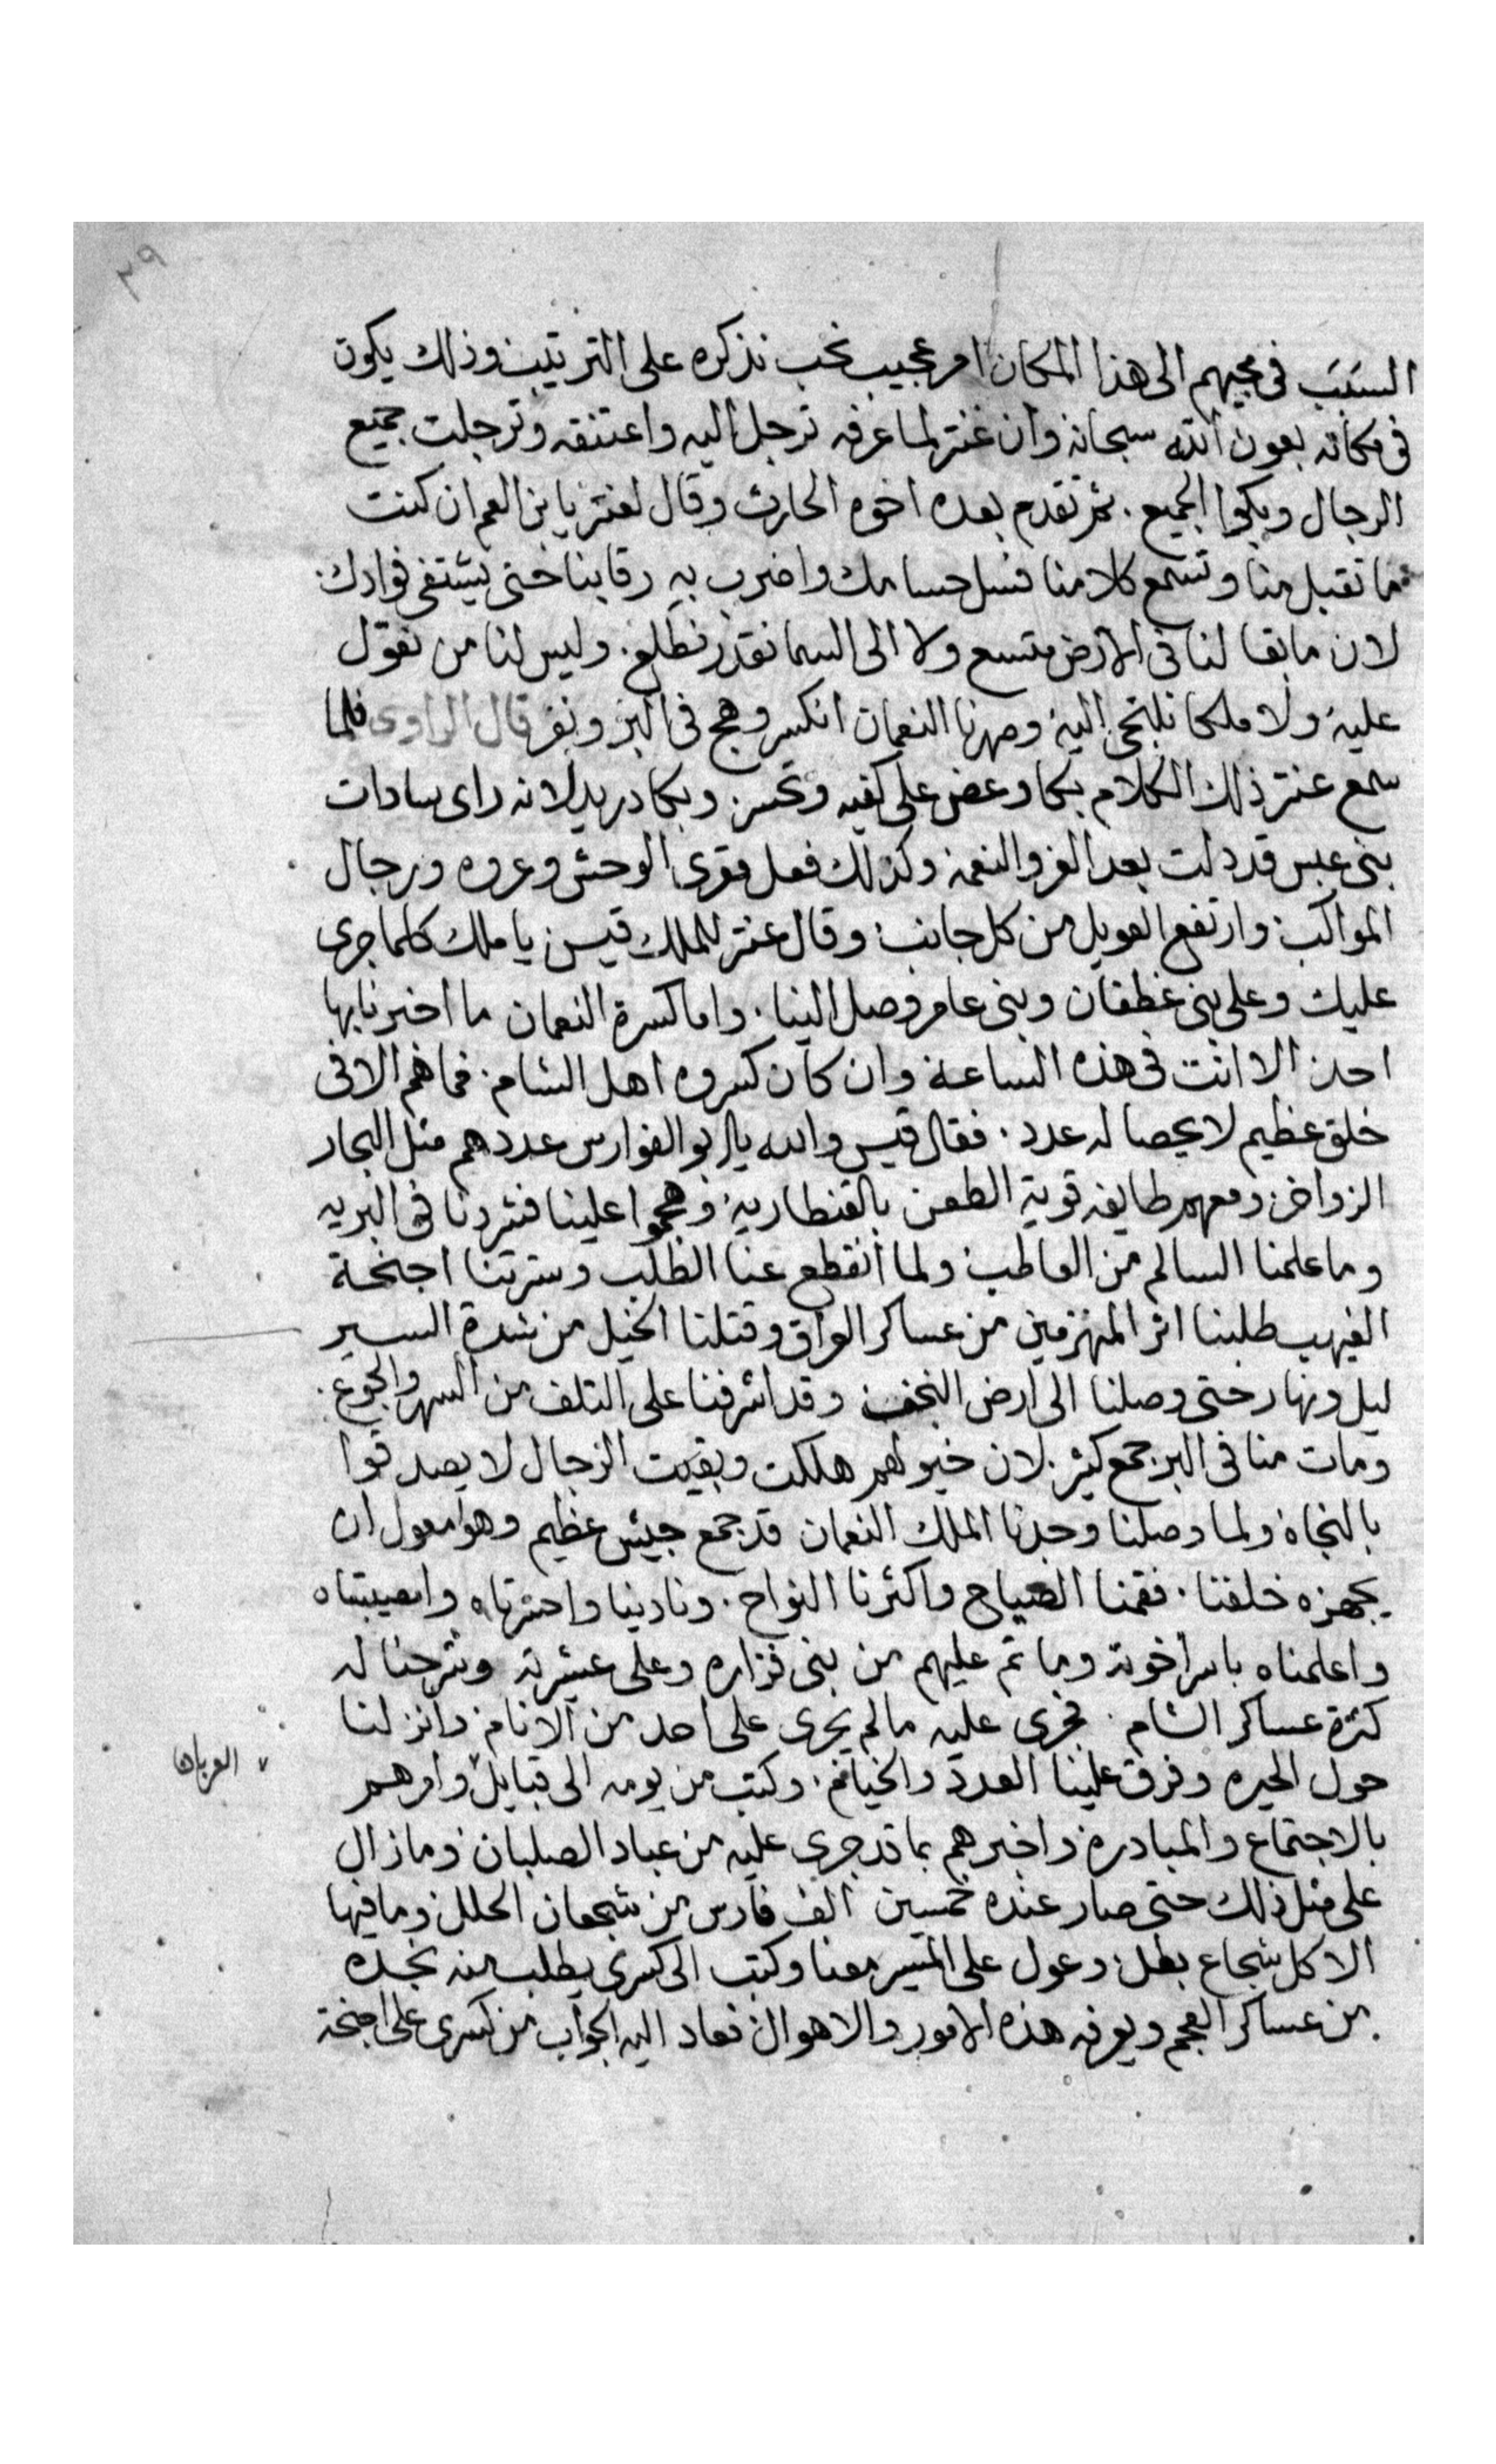 ٣٩
السبب فى مجيهم الى هذا المكان امر عجيب نحب نذكره على الترتيب وذلك يكون
فى مكانه بعون الله سبحانه وان عنتر لما عرفه ترجل اليه واعتنقه وترجلت جميع
الرجال وبكوا الجميع . ثم تقدم بعده اخوه الحارث وقال لعنتر يا بن العم ان كنت
ما تقبل منا وتسمع كلامنا فسل حسامك واضرب به رقابنا حتى يشتفى فوادك .
لان ما بقا لنا فى الارض متسع ولا الى السما نقدر نطلع . وليس لنا من نعول
عليه ولا ملكا نلتجى اليه وصهرنا النعمان انكسر وهج فى البر ونفر قال الراوى فلما
سمع عنتر ذلك الكلام بكا وعض على كفيه وتحسر وبكا دريد لانه راى سادات
بنى عبس قد دلت بعد العز والنعمه وكذلك فعل مقرى الوحش وعروه ورجال
المواكب وارتفع العويل من كل جانب وقال عنتر للملك قيس يا ملك كلما جرى
عليك وعلى بنى غطفان وبنى عامر وصل الينا . واما كسرة النعمان ما اخبرنا بها
احد الا انت فى هذه الساعة وان كان كسروه اهل الشام . فما هم الا فى
خلق عظيم لا يحصا له عدد . فقال قيس والله يا ابو الفوارس عددهم مثل البحار
الزواخر ومعهم طايفه قوية الطعن بالقنطاريه وهجموا علينا فشردنا فى البريه
وما علمنا السالم من العاطب ولما انقطع عنا الطلب وسترتنا اجنحة
الغيهب طلبنا اثر المنهزمين من عساكر العراق وقتلنا الخيل من شدة السير
ليل ونهار حتى وصلنا الى ارض النجف وقد اشرفنا على التلف من السهر والجوع .
ومات منا فى البر جمع كثير . لان خيولهم هلكت وبقيت الرجال لا يصدقوا
بالنجاه ولما وصلنا وجدنا الملك النعمان قد جمع جيش عظيم وهو معول ان
يجهزه خلفنا . فقمنا الصياح واكثرنا النواح . ونادينا واحسرتاه وامصيبتاه
واعلمناه باسر اخوته وما تم عليهم من بنى فزاره وعلى عشيرته وشرحنا له
كثرة عساكر الشام . فجرى عليه ما لم يجرى على احد من الانام . وانزلنا
حول الحيره وفرق علينا العدد والخيام . وكتب من يومه الى قبايل وامرهم
العربان
بالاجتماع والمبادره واخبرهم بما قد جرى عليه من عباد الصلبان وما زال
على مثل ذلك حتى صار عنده خمسين الف فارس من شجعان الحلل وما فيها
الا كل شجاع بطل وعول على المسير معنا وكتب الى كسرى يطلب منه نجده
من عساكر العجم ويعرفه هذه الامور والاهوال فعاد اليه الجواب من كسرى على اجنحة